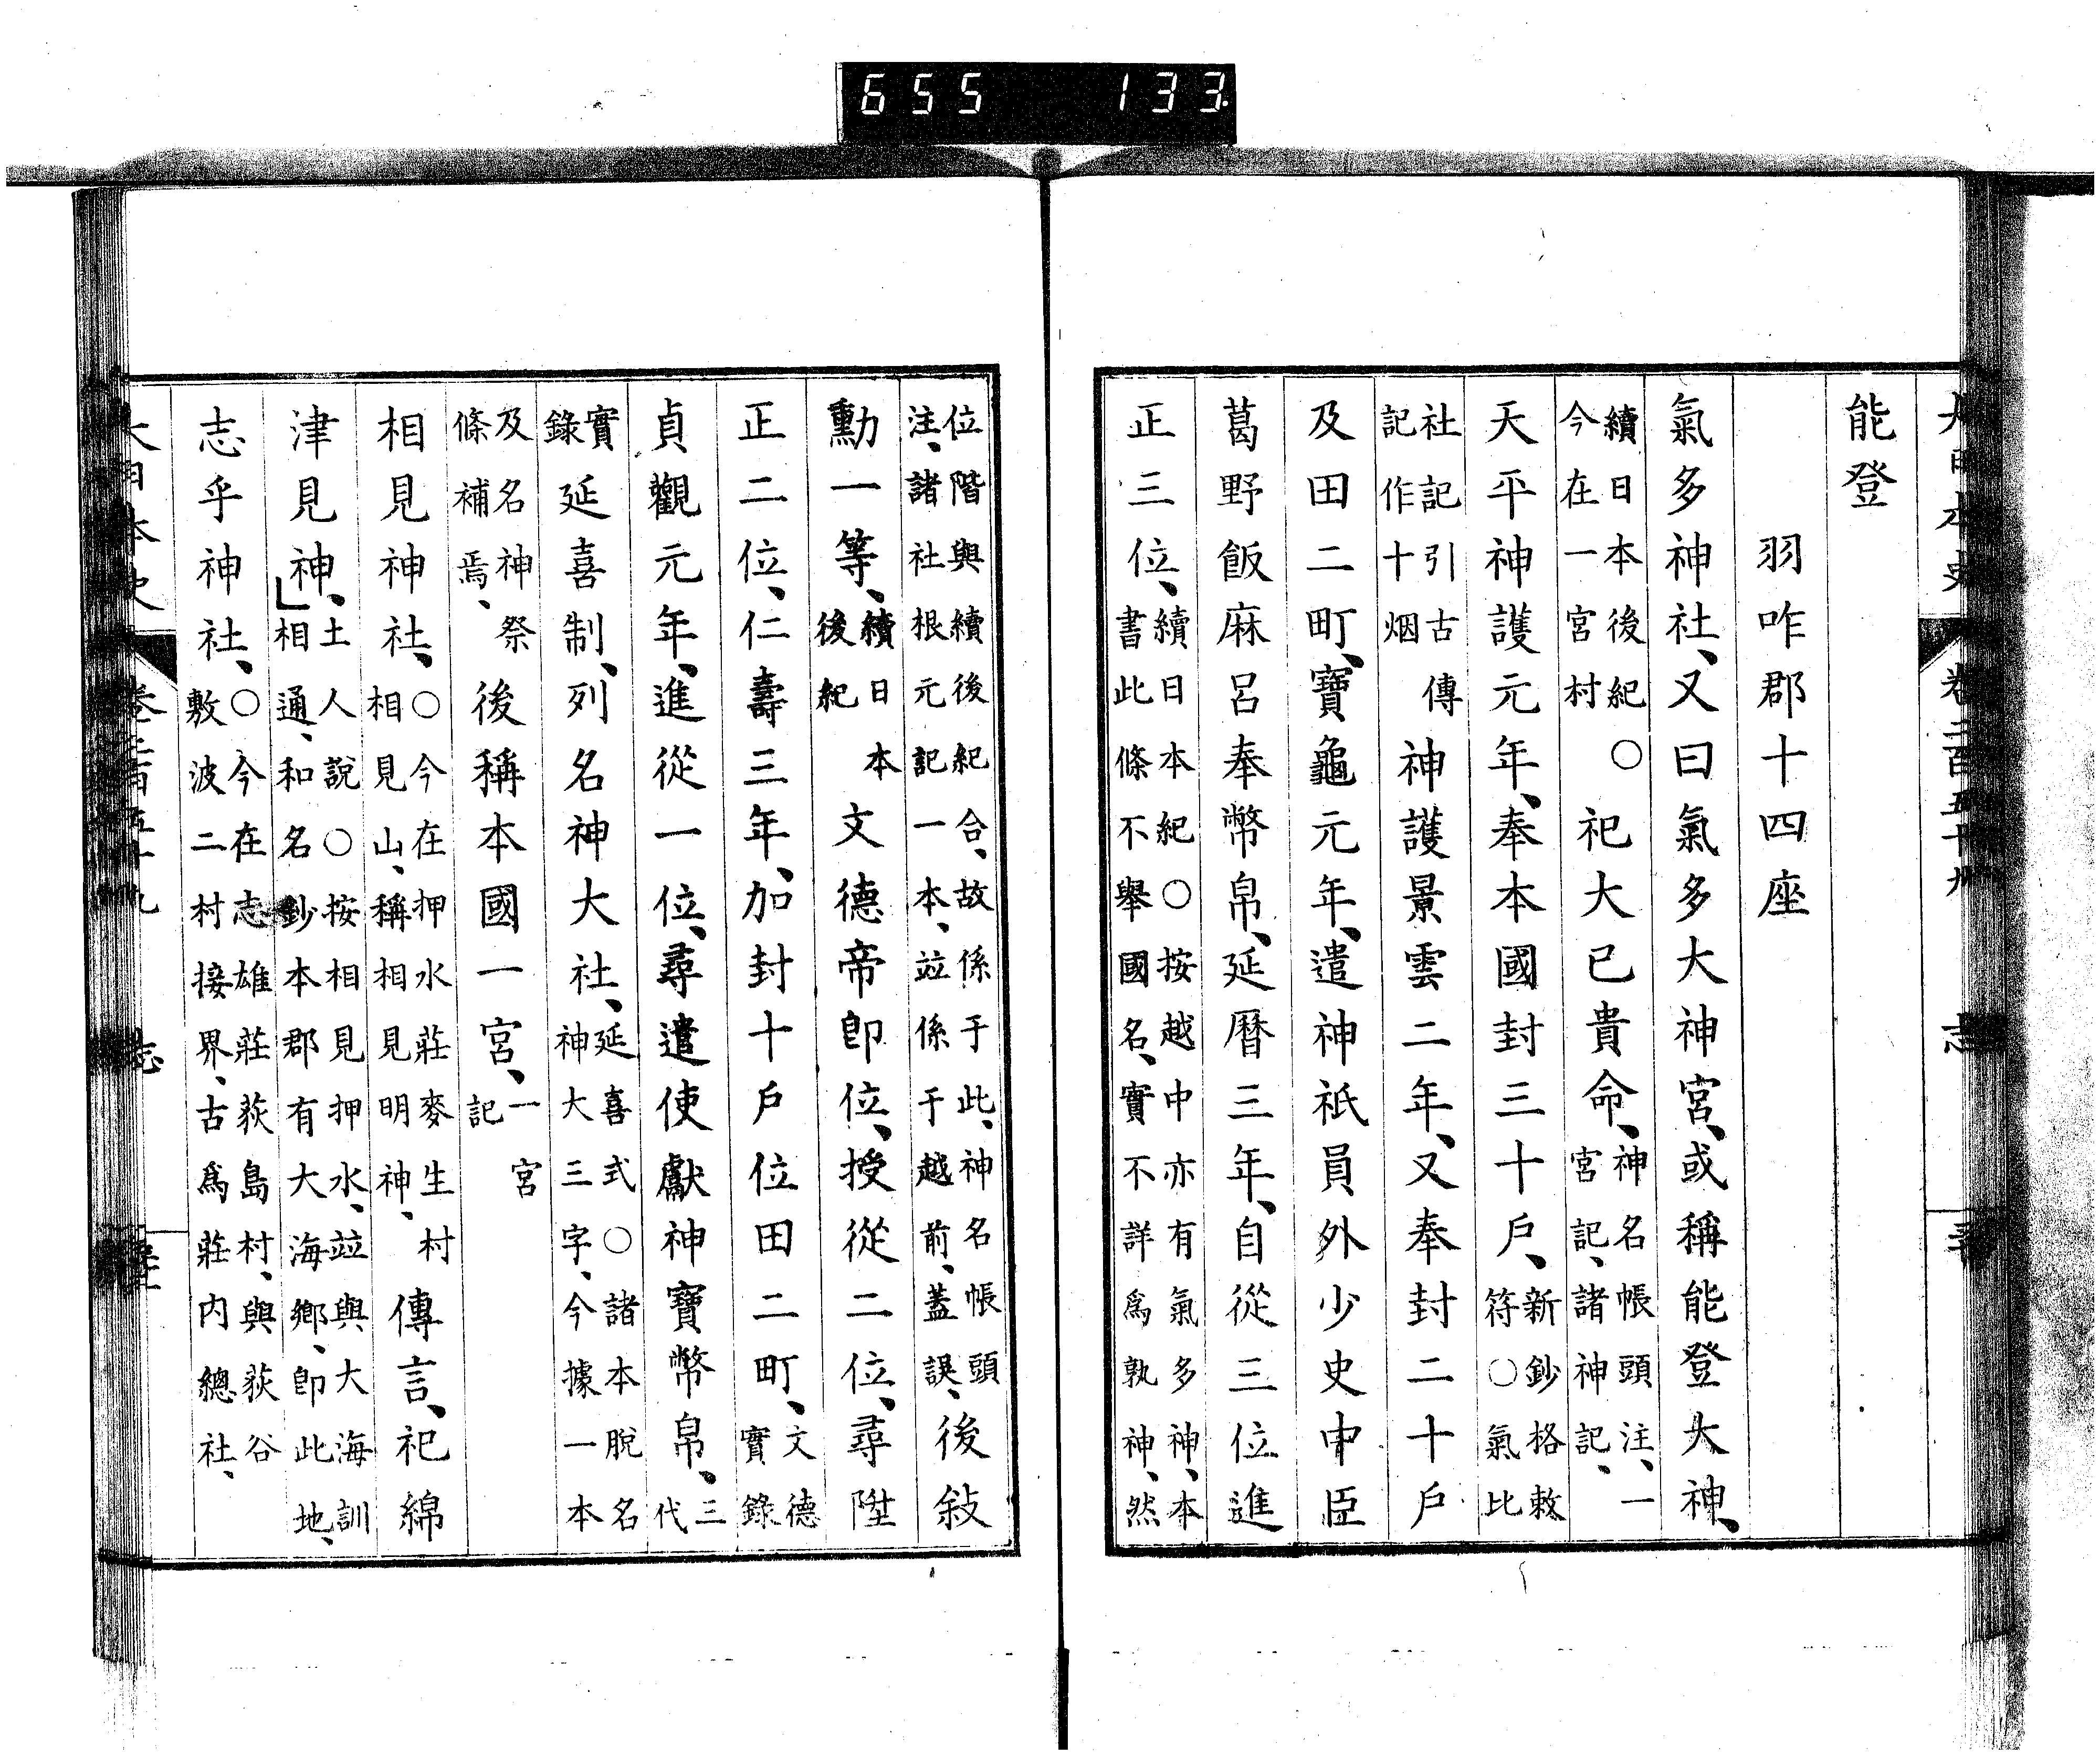 655 133
能登
羽咋郡十四座
氣多神社、又曰氣多大神宮、或稱能登大神、
續日本後紀○
今在一宮村
祀大己貴命、
神名帳頭注、一
宮記、諸神記、
天平神護元年、奉本國封三十戸、
新鈔格敕
符○氣比
社記引古傳
記作十烟
神護景雲二年、又奉封二十戸
及田二町、寶龜元年、遣神祇員外少史中臣
葛野飯麻呂奉幣帛、延曆三年、自從三位進
正三位、
續日本紀○按越中亦有氣多神、本
書此條不舉國名、實不詳爲孰神、然
位階與續後紀合、故係于此、神名帳頭
注、諸社根元記一本、竝係于越前、蓋誤、
後敍
勳一等、
續日本
後紀
文德帝卽位、授從二位、尋陞
正二位、仁壽三年、加封十戸位田二町、
文德
實錄
貞觀元年、進從一位、尋遣使獻神寶幣帛、
三
代
實
錄
延喜制、列名神大社、
延喜式○諸本脫名
神大三字、今據一本
及名神祭
條補焉、
後稱本國一宮、
一宮
記
相見神社、
○今在押水莊麥生村
相見山、稱相見明神、
傳言、祀綿
津見神、
土人說○按相見押水、竝與大海訓
相通、和名鈔本郡有大海鄉、卽此地、
志乎神社、
○今在志雄莊荻島村、與荻谷
敷波二村接界、古爲莊内總社、
大日本史
卷二百五十九
志